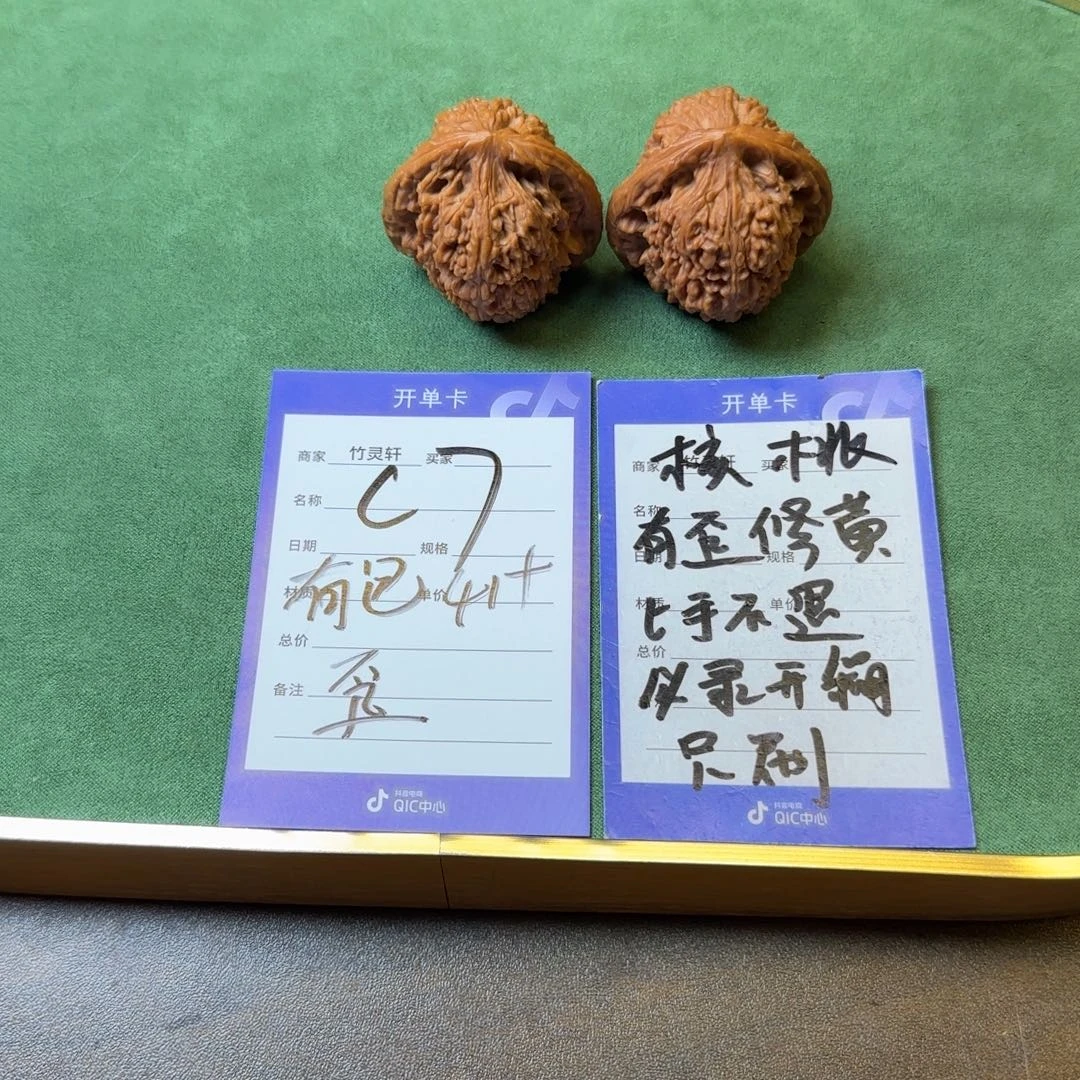 开单卡
商家 竹灵轩 买家
名称
C7
日期 规格
有记 41+
材质 单价
总价
歪
备注
抖音电商
QIC中心
开单卡
商家 竹灵轩 买家
核桃
名称
有歪修黄
日期 规格
材质 单价
上手不退
总价
以录开 只刷
抖音电商
QIC中心